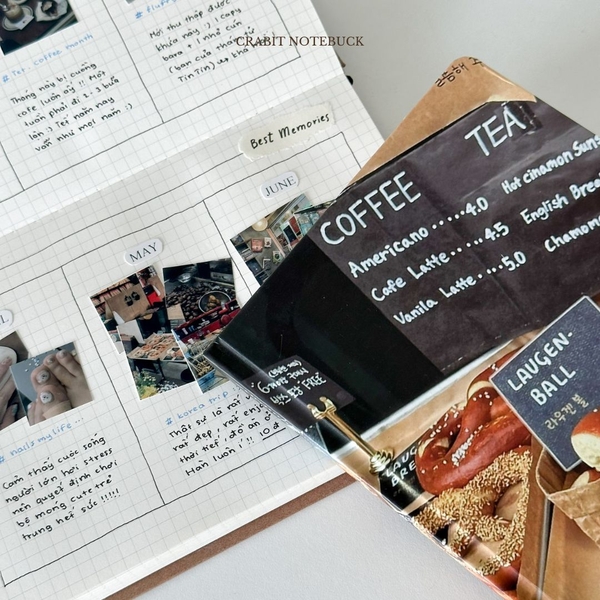 CRABIT NOTEBUCK
# Tet. coffee month
Tháng này bị cuồng
cafe luôn ấy !! Mới
lần :) Tết năm nay
vẫn như mọi năm :)
Mới thu thập được
khúa này :) 1 copy
(bạn của tha
Tin Tin)
Best Memories
JUNE
MAY
# nails my life...
Cảm thấy cuộc sống
người lớn hơi stress
nên quyết định chơi
bộ móng cute trẻ
trung hết sức !!!!!
# korea trip
Thật sự là rất
rất đẹp, rất enjoy
thời tiết, đồ ăn ở
Hàn luôn !!! 10 đ
COFFEE
Americano......4.0
Cafe Latte.....4.5
Vanila Latte....5.0
TEA
Hot cinamon Suns
English Brea
Chamom
LAUGEN-
BALL
라우겐 볼